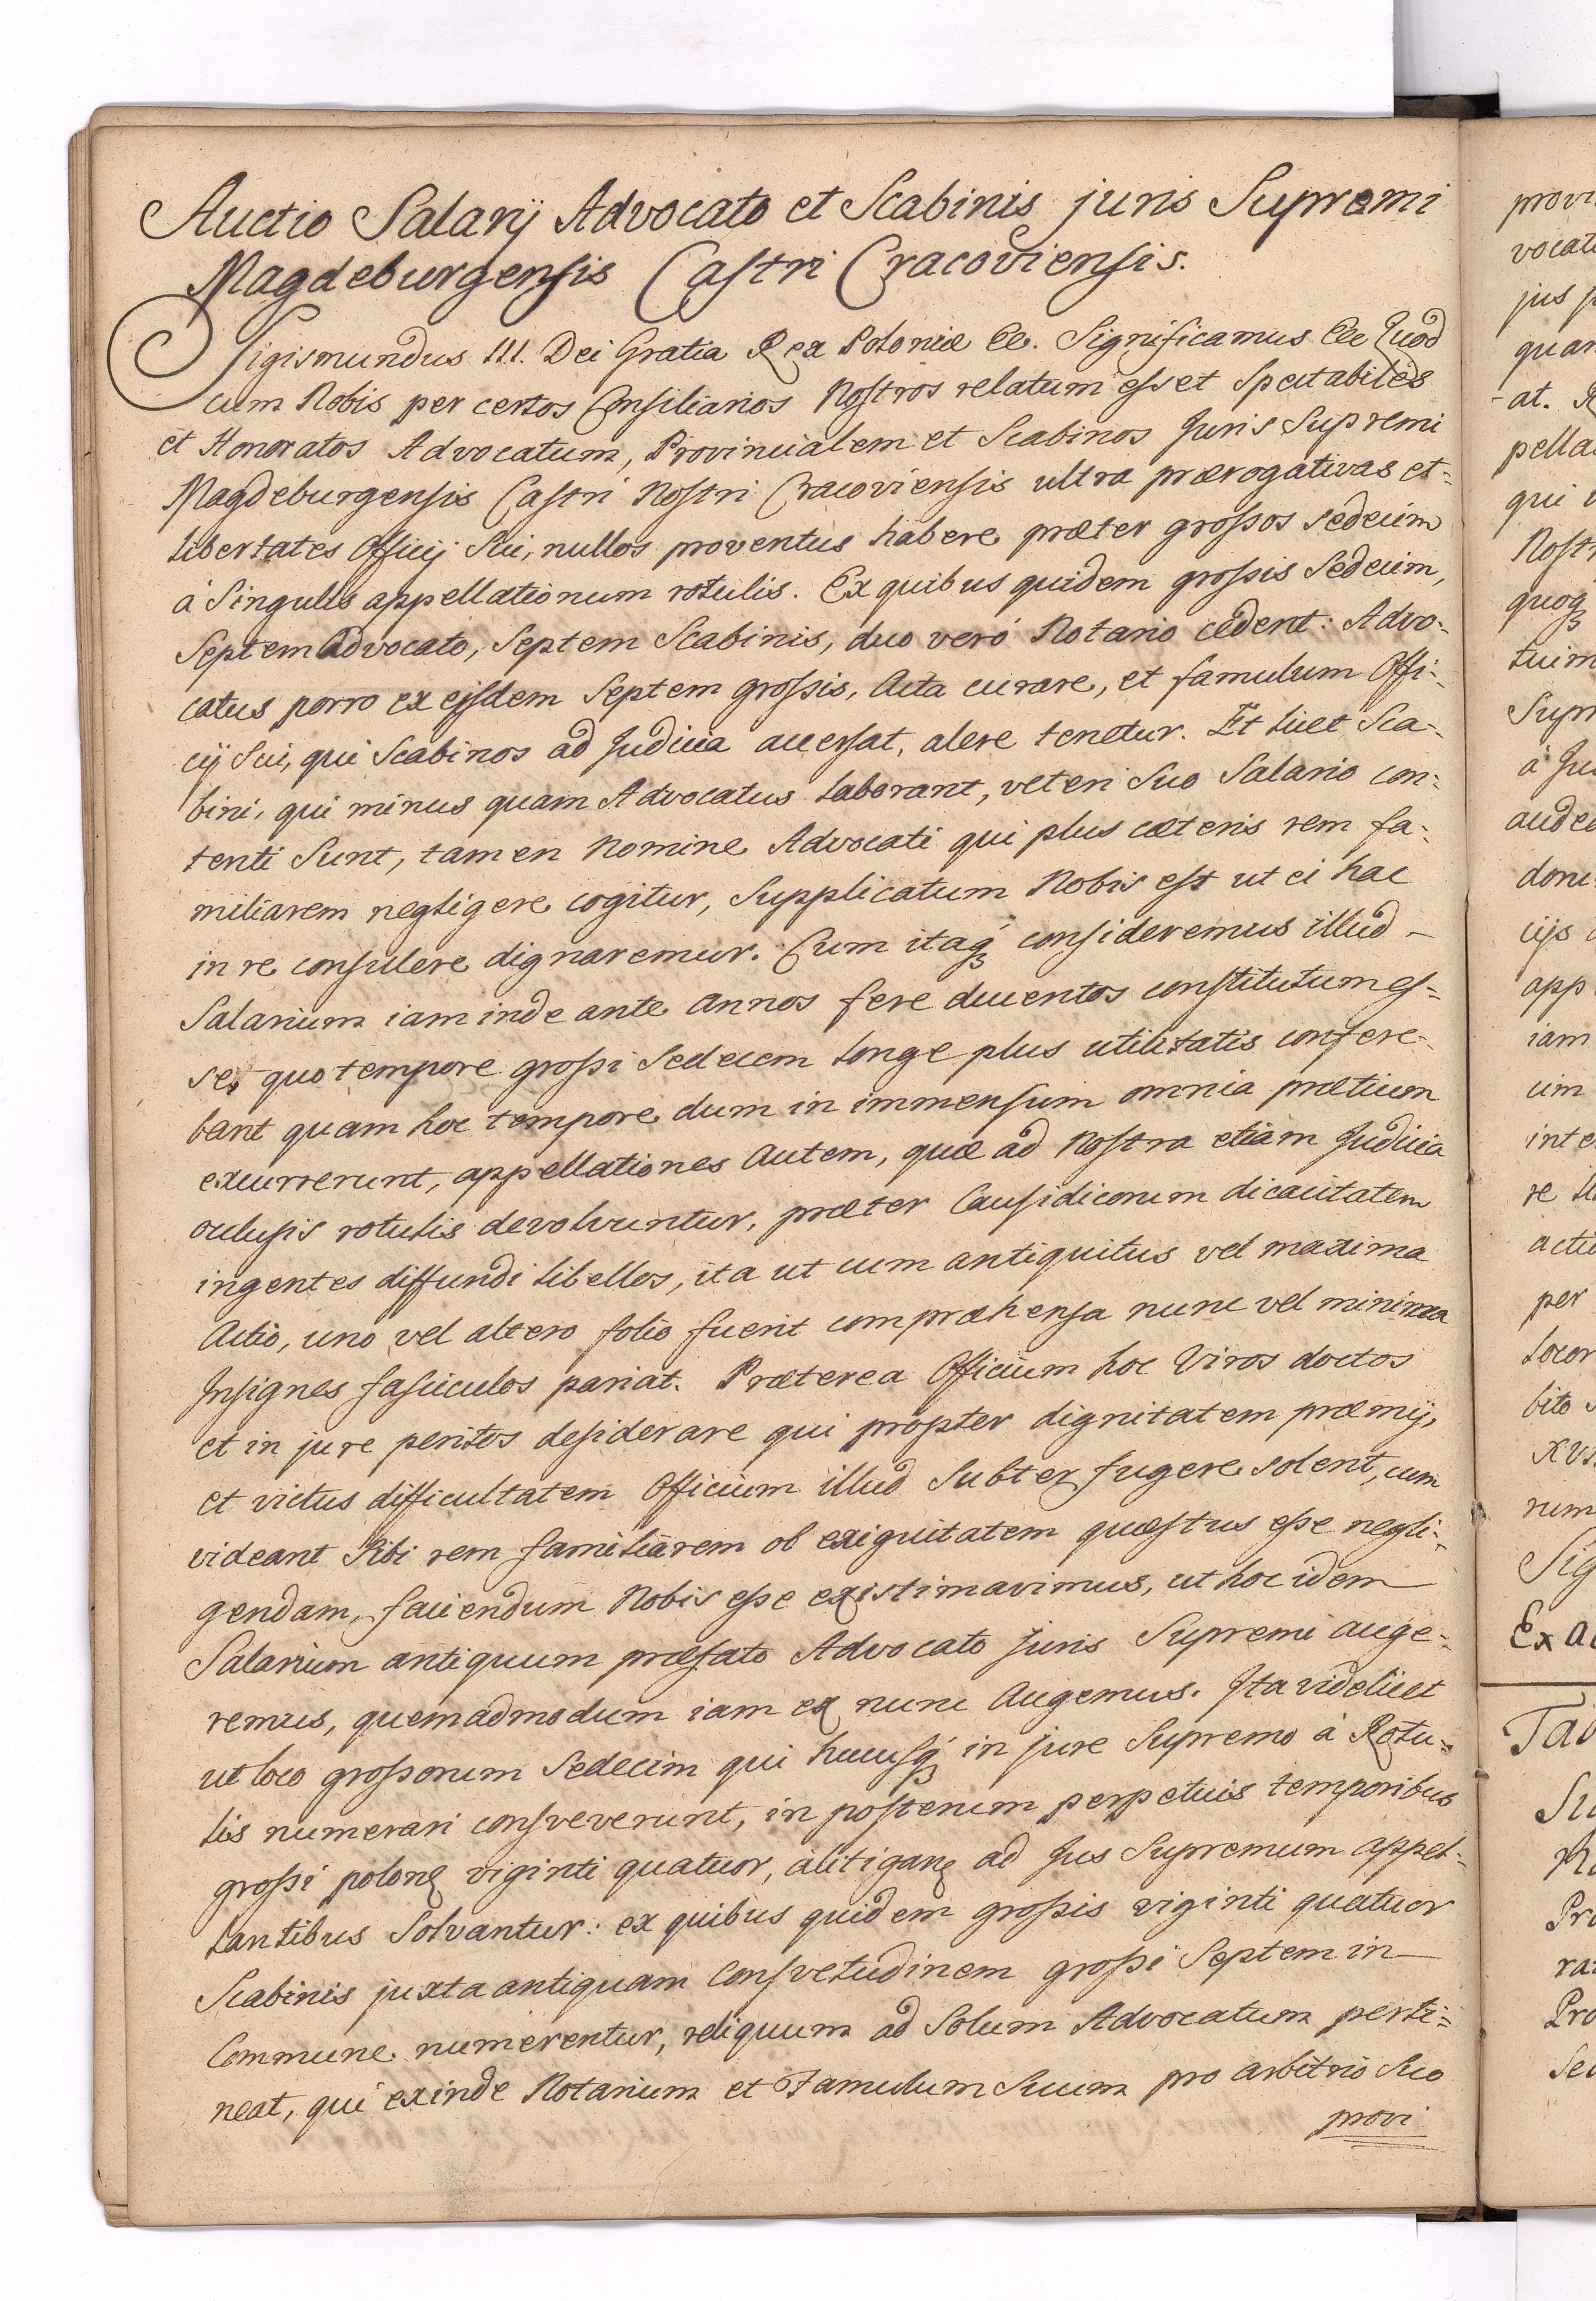 Auctio Salarij Advocato et Scabinis juris Supremi
Magdeburgensis Castri Cracoviensis.
Sigismundus III. Dei Gratia Rex Poloniæ &c. Significamus &c Quod
cum Nobis per certos Consiliarios Nostros relatum esset Spectabiles
et Honoratos Advocatum, Provincialem et Scabinos Juris Supremi
Magdeburgensis Castri Nostri Cracoviensis ultra prærogativas et=
libertates Officij Sui, nullos proventus habere præter grossos sedecim
à Singulis appellationum rotulis. Ex quibus quidem grossis Sedecim,
Septem Advocato, Septem Scabinis, duo veró Notario cedent: Advo=
catus porro ex ejsdem Septem grossis, Acta curare, et famulum Offi=
cij Sui, qui Scabinos ad Judicia accersat, alere tenetur. Et licet Sca=
bini, qui minus quam Advocatus laborant, veteri Suo Salario con=
tenti Sunt, tamen Nomine Advocati qui plus cæteris rem fa=
miliarem negligere cogitur, Supplicatum Nobis est ut ei hac
in re consulere dignaremur. Cum itaq́ꝫ consideremus illud -
Salarium iam inde ante annos fere ducentos constitutum es=
se, quo tempore grossi Sedecem longe plus utilitatis confere=
bant quam hoc tempore dum in immensum omnia prætium
excurrerunt, appellationes Autem, quæ ad Nostra etiam Judicia
occlusis rotulis devolvuntur, præter Causidicorum dicacitatem
ingentes diffundi libellos, ita ut cum antiquitus vel maxima
Actio, uno vel altero folio fuerit compræhensa nunc vel minima
Insignes fasciculos pariat. Præterea Officium hoc Viros doctos
et in jure peritos desiderare qui propter dignitatem præmij,
et victus difficultatem Officium illud Subterfugere solent, cum
videant Sibi rem familiarem ob exiguitatem quæstus esse negli=
gendam, faciendum Nobis esse existimavimus, ut hoc idem
Salarium antiquum præfato Advocato Juris Supremi auge=
remus, quemadmodum iam ex nunc Augemus. Ita videlicet
ut loco grossorum Sedecim qui hucusq́ꝫ in jure Supremo à Rotu=
lis numerari consveverunt, in posterum perpetuis temporibus
grossi polonę viginti quatuor, à litiganę ad Jus Supremum appel=
lantibus Solvantur: ex quibus quidem grossis viginti quatuor
Scabinis juxta antiquam Consvetudinem grossi Septem in
Commune numerentur, reliquum ad Solum Advocatum perti=
neat, qui exinde Notarium et Famulum Suum pro arbitrio Suo
provi
provi
vocat
jus p
quan
-at. R
pella
qui v
Nostr
quoqꝫ
tuim
Supr
à Ju
audea
done
cijs
app
iam
cim
inte
re
actio
per
locor
bito s
xvs
num
Sig
Ex ac
Tab
Su
Pro
ra
Pro
Sec